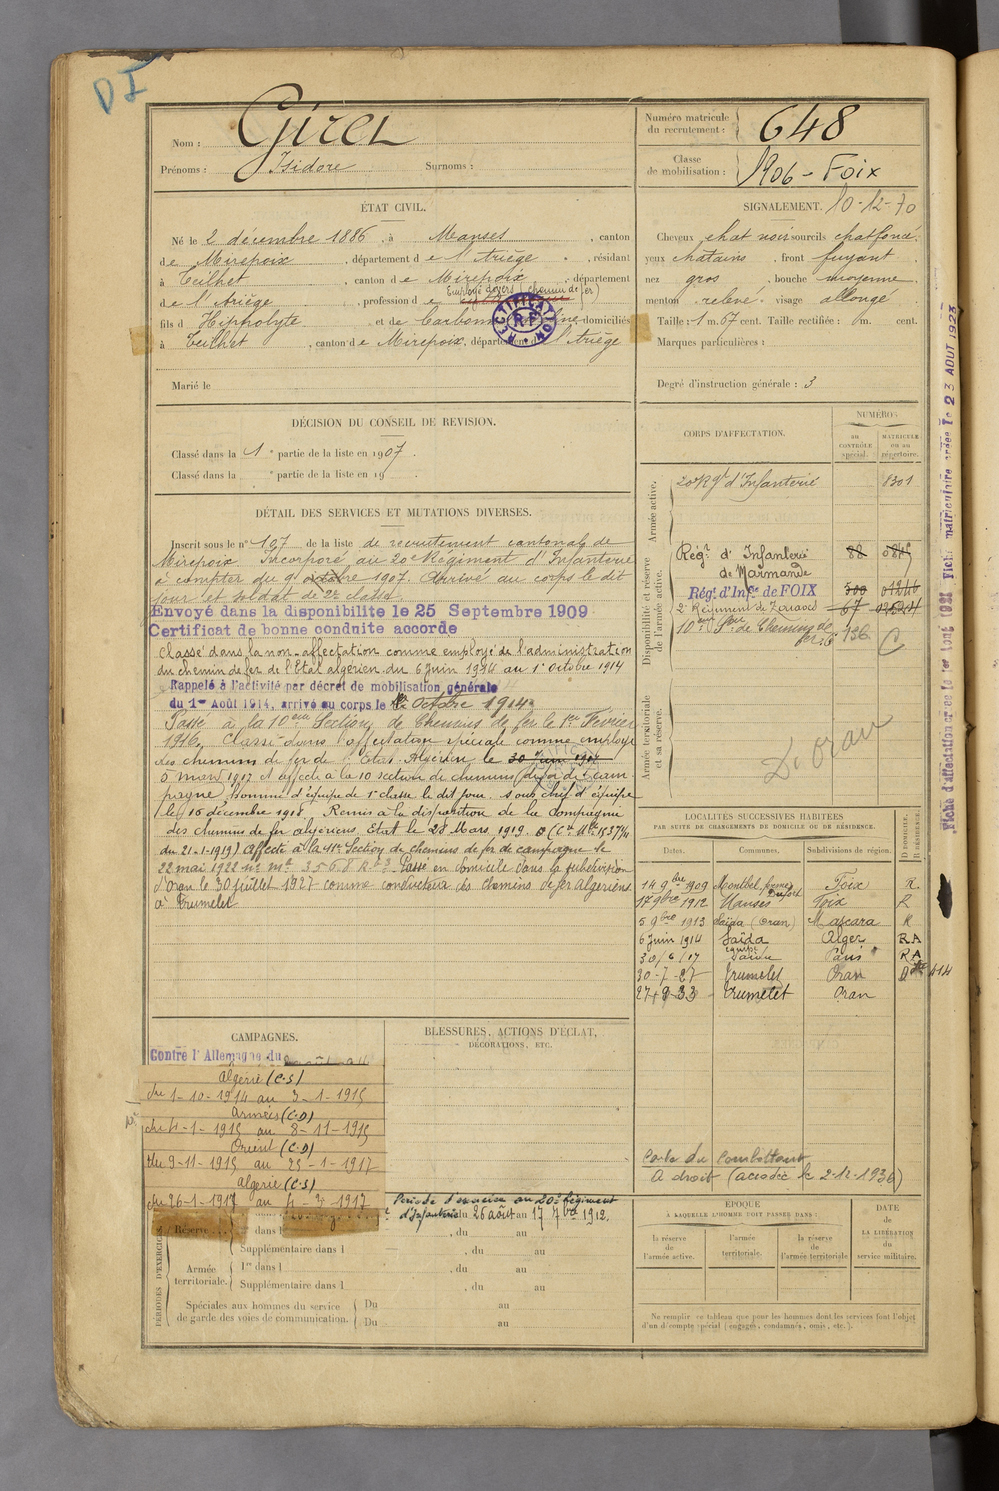 D I
Nom : Girel
Prénoms : Isidore Surnoms :
Numéro matricule du recrutement : 648
Classe de mobilisation : 1906 - Foix
ÉTAT CIVIL.
Né le 2 décembre 1886, à Manses, canton
de Mirepoix, département de l'Ariège, résidant
à Teilhet, canton de Mirepoix, département
de l'Ariège, profession de Employé divers (chemin de fer)
fils d'Hippolyte et de domiciliés
à Teilhet, canton de Mirepoix, département de l'Ariège
RECTIFICATION RF
Marié le
SIGNALEMENT. 10-12-70
Cheveux chat noir sourcils chat foncé
yeux chatains, front fuyant
nez gros, bouche moyenne
menton relevé visage allongé
Taille : 1 m. 67 cent. Taille rectifiée : m. cent.
Marques particulières :
Degré d'instruction générale : 3
DÉCISION DU CONSEIL DE REVISION.
Classé dans la 1e partie de la liste en 1907.
Classé dans la e partie de la liste en 19
DÉTAIL DES SERVICES ET MUTATIONS DIVERSES.
Inscrit sous le n° 107 de la liste de recrutement cantonal de
Mirepoix Incorporé au 20e Régiment d'Infanterie
à compter du 9 octobre 1907. Arrivé au corps le dit
jour et soldat de 2e classe
Envoyé dans la disponibilite le 25 Septembre 1909
Certificat de bonne conduite accorde
Classé dans la non-affectation comme employé de l'administration
du chemin de fer de l'Etat algérien du 6 juin 1914 au 1er octobre 1914
Rappelé à l'activité par décret de mobilisation générale
du 1er Août 1914, arrivé au corps le 1er Octobre 1914
Passé à la 10ème Section de Chemins de fer le 1er Février
1916. Classé dans l'affectation spéciale comme employé
des chemins de fer de l'Etat Algérien le 30 juin 1917
5 mars 1917 et affecté à la 10 section de chemins de fer de cam-
pagne, homme d'équipe de 1e classe le dit jour. sous chef d'équipe
le 16 décembre 1918. Remis à la disposition de la Compagnie
des chemins de fer algériens Etat le 28 Mars 1919.
du 21-1-1919) Affecté à la 4e Section de chemins de fer de campagne le
22 mai 1922 Passé en domicile dans la subdivision
d'Oran le 30 juillet 1927 comme conducteur des chemins de fer Algériens
à Trumelet
CORPS D'AFFECTATION.
NUMÉROS
au contrôle spécial.
MATRICULE ou au répertoire.
Armée active.
20e Rgt d'Infanterie 8301
Disponibilité et réserve de l'armée active.
Régt d'Infanterie
de Marmande
Régt d'Infie de FOIX
2e Régiment de Zouaves 67
10ème Son de Chemins de fer 136 C
Armée territoriale et sa réserve.
D. Oran
LOCALITÉS SUCCESSIVES HABITÉES
PAR SUITE DE CHANGEMENTS DE DOMICILE OU DE RÉSIDENCE.
Dates. Communes. Subdivisions de région. D DOMICILE. R RÉSIDENCE.
14 9bre 1909 Foix R.
17 9bre 1912 Manses Foix R
5 9bre 1913 Saïda (Oran) Mascara R
6 Juin 1914 Saïda Alger RA
30/6/17 Paris RA
30-7-27 Trumelet Oran D
27-9-33 Trumelet Oran
Carte du Combattant
A droit (accordée le 2-12-1936)
CAMPAGNES.
Contre l'Allemagne du
Algérie (C.S)
du 1-10-1914 au 3-1-1915
Armées (C.D)
du 4-1-1915 au 8-11-1915
Orient (C.D)
du 9-11-1915 au 25-1-1917
Algérie (C.S)
du 26-1-1917 au 4-3-1917
BLESSURES, ACTIONS D'ÉCLAT,
DÉCORATIONS, ETC.
PÉRIODES D'EXERCICES
Période d'exercice au 20e Régiment
d'Infanterie du 26 août au 17 7bre 1912.
Réserve dans l
, du au
Supplémentaire dans l , du au
Armée territoriale. 1re dans l , du au
Supplémentaire dans l , du au
Spéciales aux hommes du service
de garde des voies de communication.
Du au
Du au
ÉPOQUE
À LAQUELLE L'HOMME DOIT PASSER DANS :
la réserve de l'armée active.
l'armée territoriale.
la réserve de l'armée territoriale
DATE de LA LIBÉRATION du service militaire.
Ne remplir ce tableau que pour les hommes dont les services font l'objet
d'un décompte spécial (engagés, condamnés, omis, etc.).